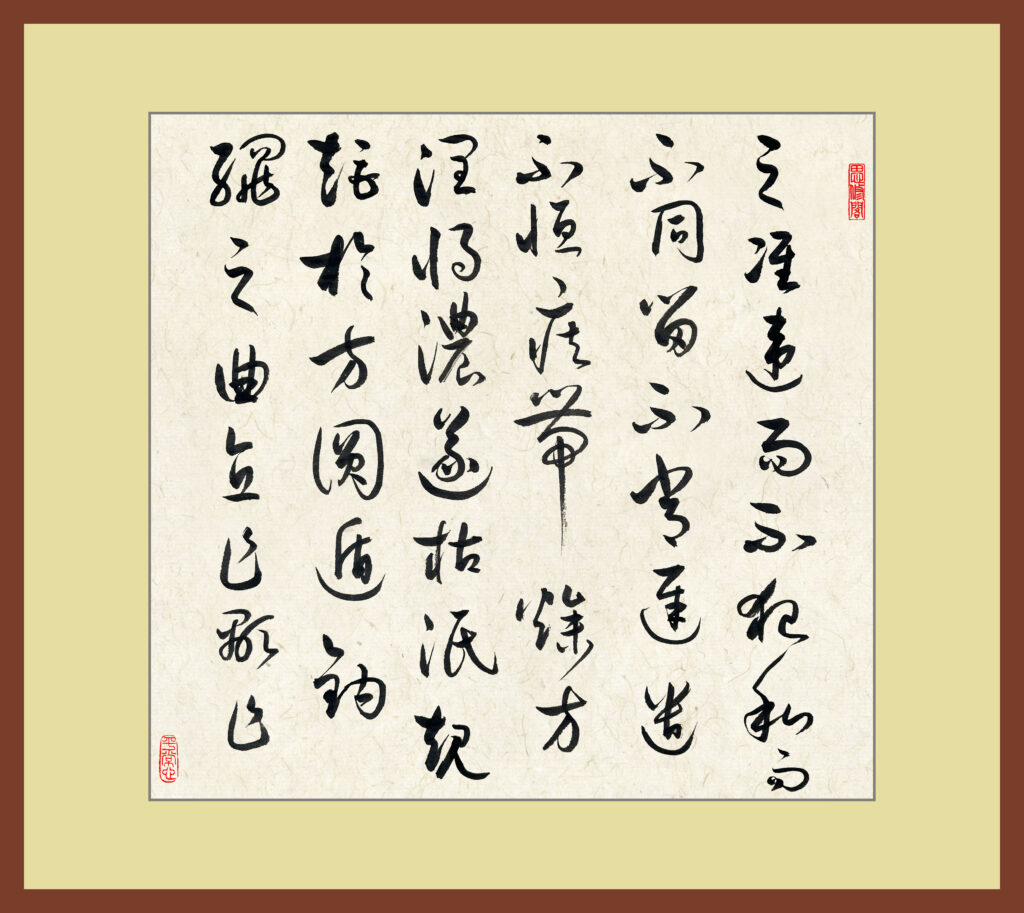 思修閣
之准違而不犯和而
不同留不常遲遣
不恒疾帶燥方
潤將濃遂枯泯規
矩於方圓遁鈎
繩之曲直乍顯乍
平常心